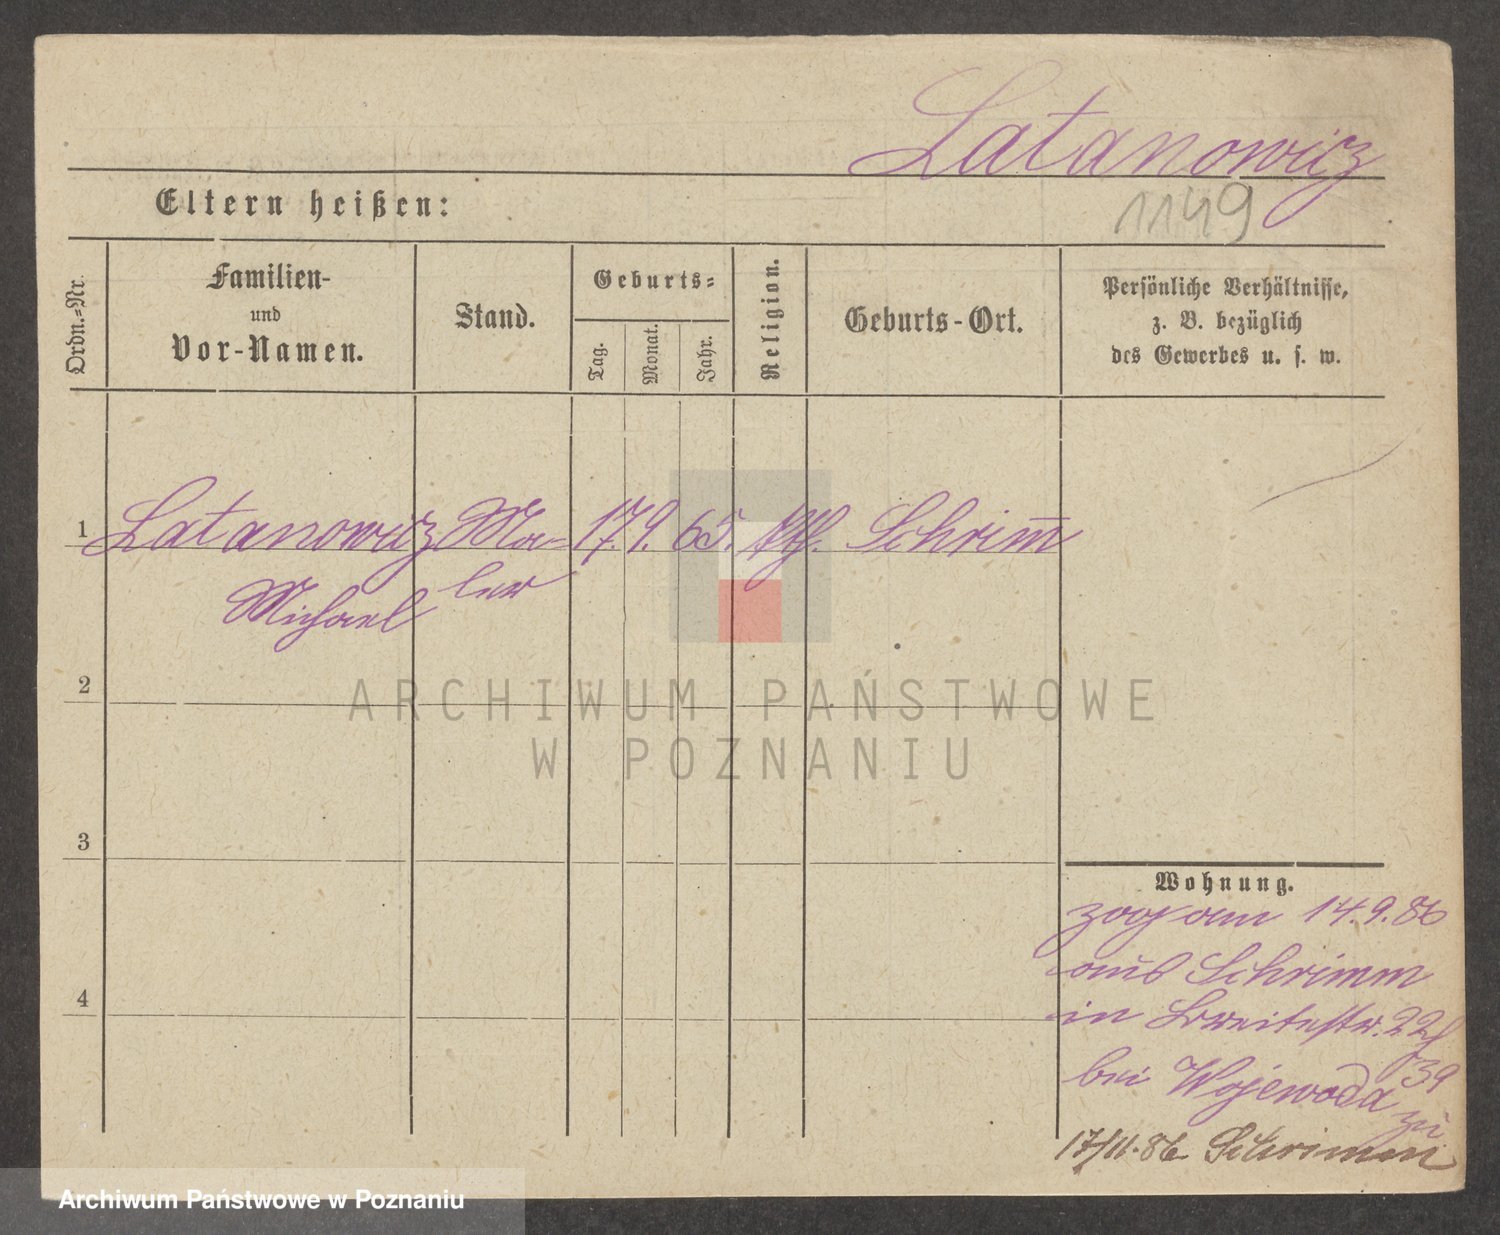 Latanowicz
1149
Eltern heißen:
Ordn.-Nr.
Familien-
und
Vor-Namen.
Stand.
Geburts-
Tag.
Monat.
Jahr.
Religion.
Geburts-Ort.
Persönliche Verhältnisse,
z. B. bezüglich
des Gewerbes u. s. w.
1 Latanowicz Ma- 17. 9. 65. kth. Schrim̅
Michael ler
2
ARCHIWUM PAŃSTWOWE
W POZNANIU
3
4
Wohnung.
zog am 14.9.86
aus Schrimm
in Breitestr. 22
/39
bei Wojewoda
zu
17/11.86 Schrimm
Archiwum Państwowe w Poznaniu